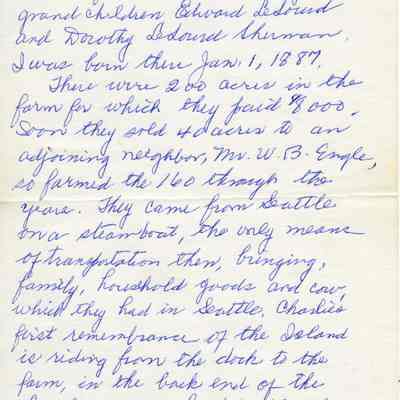 grand children Edward LeSourd
and Dorothy LeSourd Sherman.
I was born there Jan. 1, 1887.
There were 200 acres in the
farm for which they paid $8000.
Soon they sold 40 acres to an
adjoining neighbor, Mr. W. B. Engle,
so farmed the 160 through the
years. They came from Seattle
on a steamboat, the only means
of transportation then, bringing,
family, household goods and cow,
which they had in Seattle. Charlie's
first remembrance of the Island
is riding from the dock to the
farm, in the back end of the